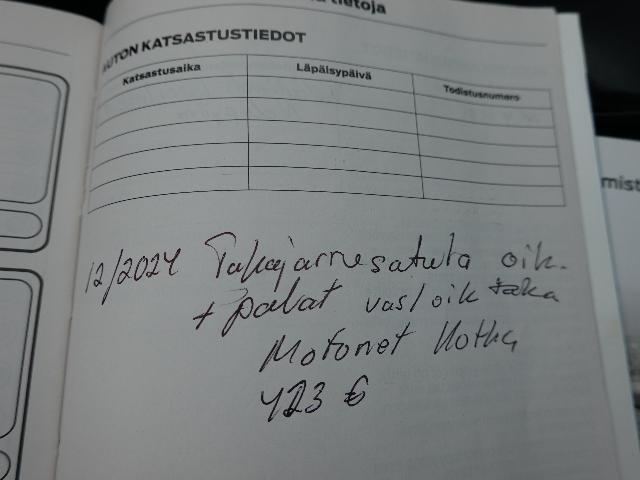 tietoja
AUTON KATSASTUSTIEDOT
Katsastusaika Läpäisypäivä Todistusnumero
12/2024 Takajarrusatula oik.
+ palat vas/oik taka
Motonet Kotka
423 €